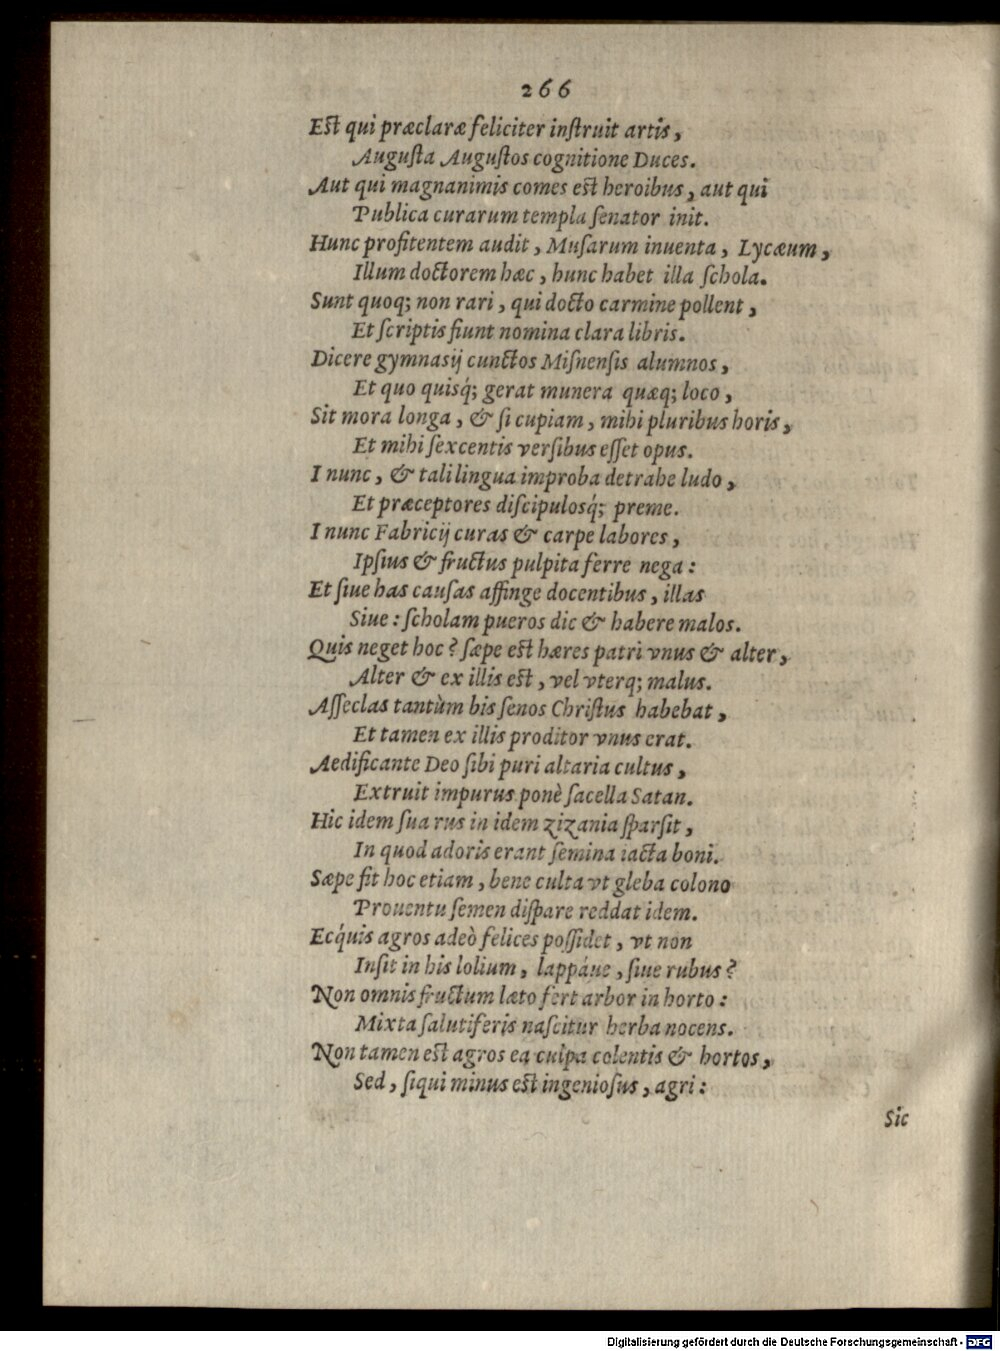 266
Est qui præclaræ feliciter inſtruit artis,
Auguſta Auguſtos cognitione Duces.
Aut qui magnanimis comes est heroibus, aut qui
Publica curarum templa ſenator init.
Hunc profitentem audit, Muſarum inuenta, Lycæum,
Illum doctorem hæc, hunc habet illa ſchola.
Sunt quoq; non rari, qui docto carmine pollent,
Et ſcriptis fiunt nomina clara libris.
Dicere gymnasij cunctos Miſnenſis alumnos,
Et quo quisq́; gerat munera quæq; loco,
Sit mora longa, & ſi cupiam, mihi pluribus horis,
Et mihi ſexcentis verſibus eſſet opus.
I nunc, & tali lingua improba detrahe ludo,
Et præceptores diſcipulosq́; preme.
I nunc Fabricij curas & carpe labores,
Ipſius & fructus pulpita ferre nega:
Et ſiue has cauſas affinge docentibus, illas
Siue: ſcholam pueros dic & habere malos.
Quis neget hoc? ſæpe est hæres patri vnus & alter,
Alter & ex illis est, vel vterq; malus.
Aſſeclas tantùm bis ſenos Chriſtus habebat,
Et tamen ex illis proditor vnus erat.
Aedificante Deo ſibi puri altaria cultus,
Extruit impurus ponè ſacella Satan.
Hic idem ſua rus in idem zizania ſparſit,
In quod adoris erant ſemina iacta boni.
Sæpe fit hoc etiam, bene culta vt gleba colono
Prouentu ſemen diſpare reddat idem.
Ecq́uis agros adeò felices poſſidet, vt non
Inſit in his lolium, lappáue, ſiue rubus?
Non omnis fructum læto fert arbor in horto:
Mixta ſalutiferis naſcitur herba nocens.
Non tamen est agros ea culpa colentis & hortos,
Sed, ſiqui minus est ingenioſus, agri:
Sic
Digitalisierung gefördert durch die Deutsche Forschungsgemeinschaft - DFG